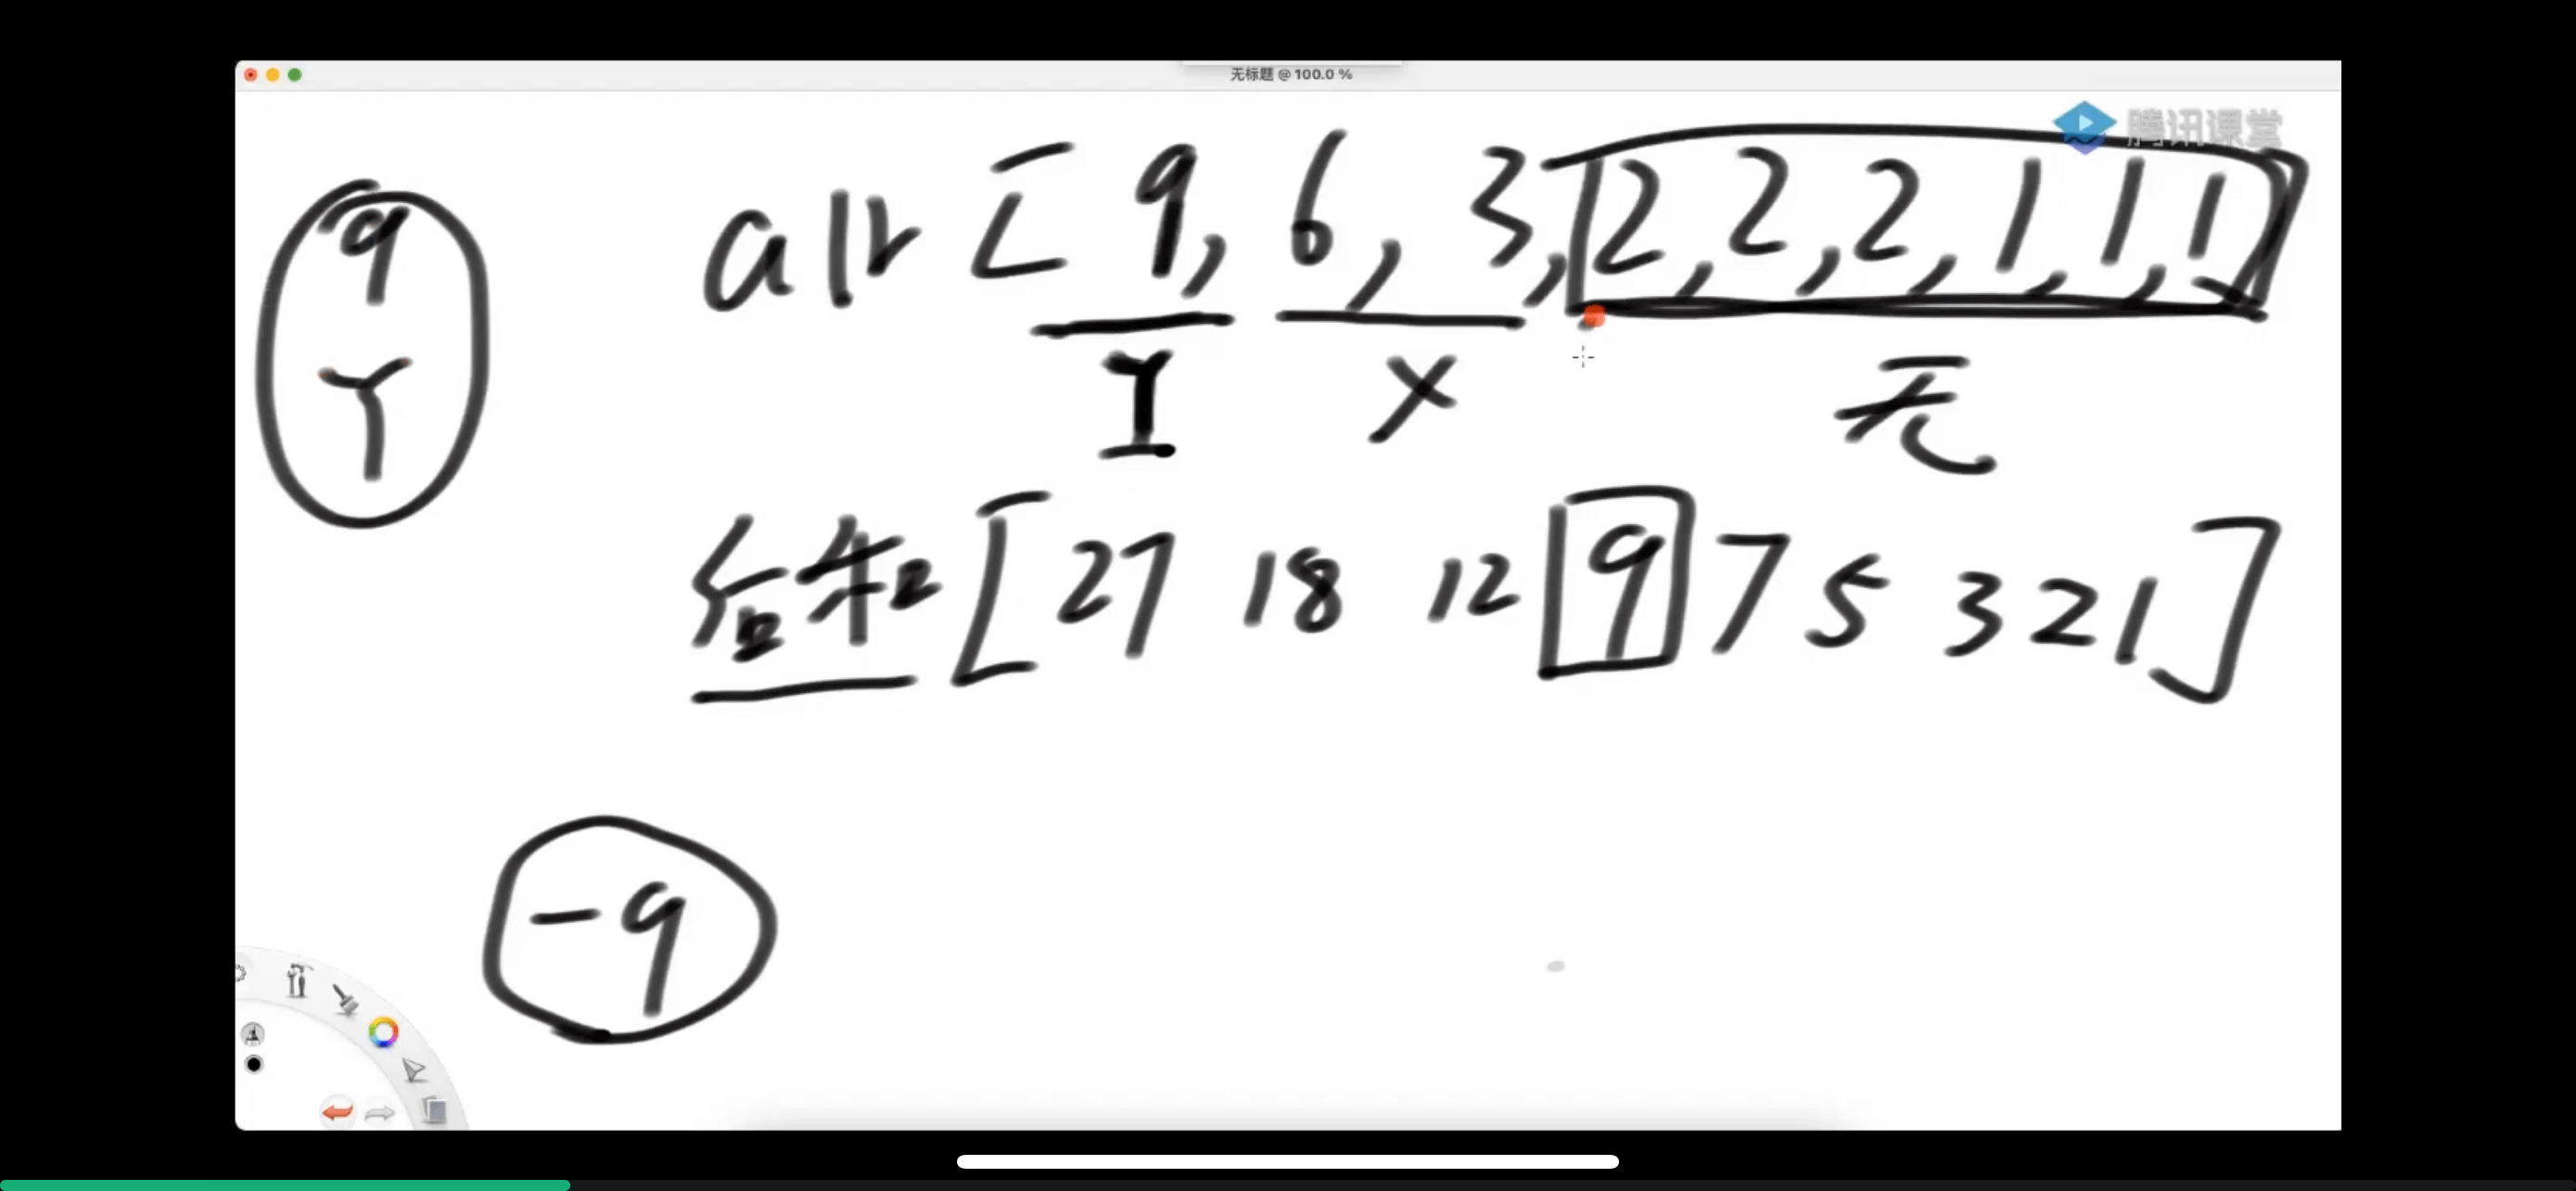 无标题 @ 100.0 %
腾讯课堂
9
Y
arr [ 9, 6, 3, [2, 2, 2, 1, 1, 1]
I X 无
[ 27 18 12 9 7 5 3 2 1 ]
-9